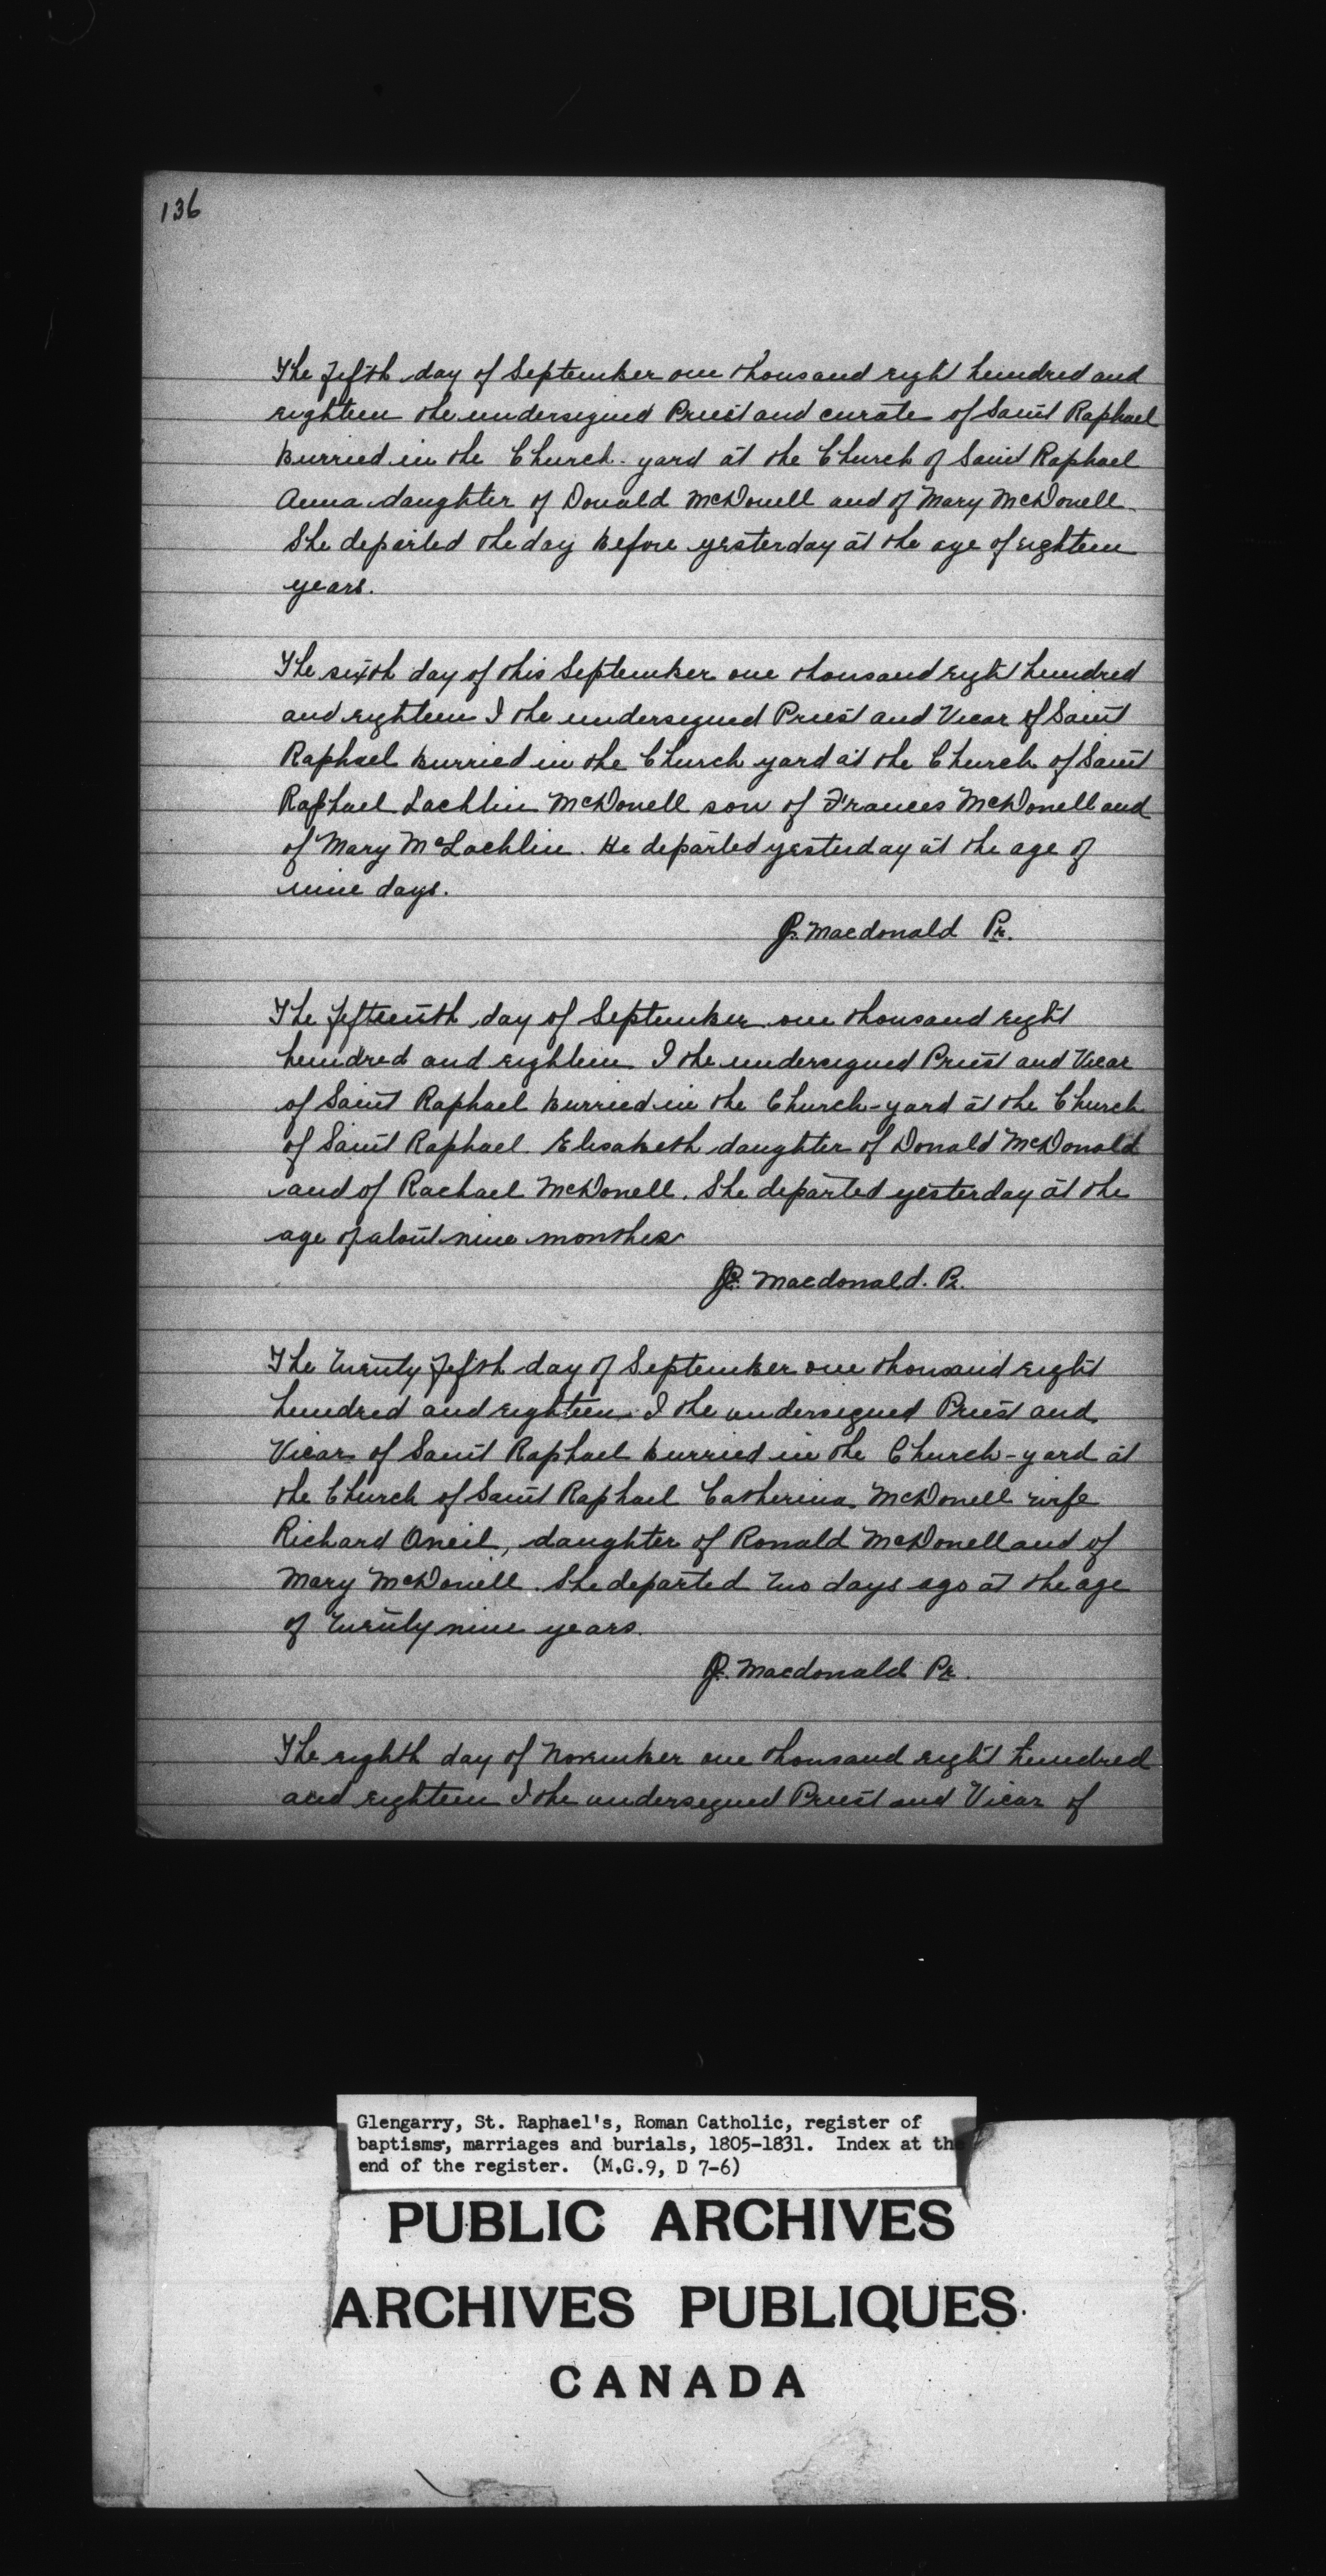 136
The fifth day of September one thousand eight hundred and
eighteen the undersigned Priest and curate of Saint Raphael
burried in the Church-yard at the Church of Saint Raphael
Anna daughter of Donald McDonell and of Mary McDonell.
She departed the day before yesterday at the age of eighteen
years.
The sixth day of this September one thousand eight hundred
and eighteen I the undersigned Priest and Vicar of Saint
Raphael burried in the Church yard at the Church of Saint
Raphael Lachlin McDonell son of Frances McDonell and
of Mary McLachlin. He departed yesterday at the age of
nine days.
J. Macdonald Pr.
The fifteenth day of September one thousand eight
hundred and eighteen I the undersigned Priest and Vicar
of Saint Raphael burried in the Church-yard at the Church
of Saint Raphael. Elisabeth daughter of Donald McDonald
and of Rachael McDonell. She departed yesterday at the
age of about nine monthes
J. Macdonald. Pr.
The twenty fifth day of September one thousand eight
hundred and eighteen I the undersigned Priest and
Vicar of Saint Raphael burried in the Church-yard at
the Church of Saint Raphael Catherina McDonell wife
Richard Oneil, daughter of Ronald McDonell and of
Mary McDonell. She departed two days ago at the age
of twenty nine years.
J. Macdonald Pr.
The eighth day of November one thousand eight hundred
and eighteen I the undersigned Priest and Vicar of
Glengarry, St. Raphael's, Roman Catholic, register of
baptisms, marriages and burials, 1805-1831. Index at the
end of the register. (M.G.9, D 7-6)
PUBLIC ARCHIVES
ARCHIVES PUBLIQUES
CANADA